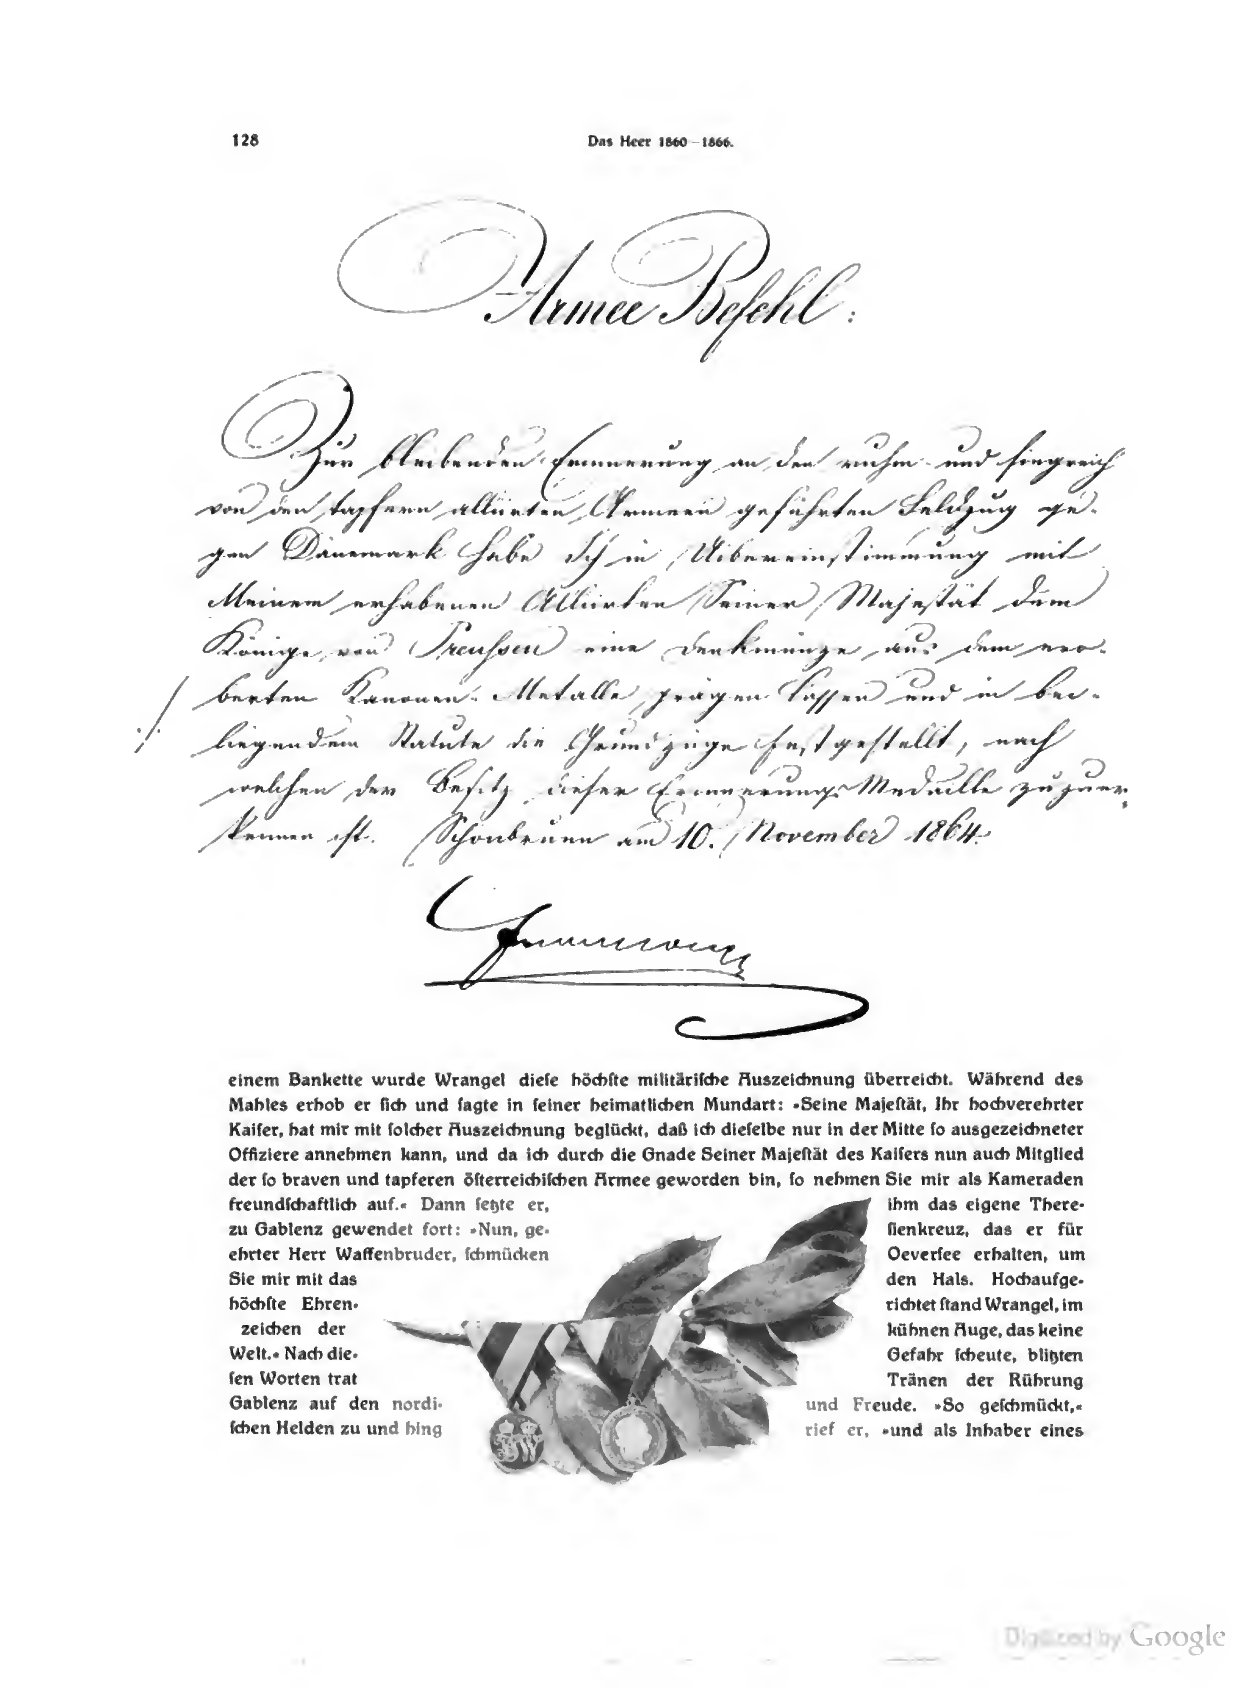 128
Das Heer 1860–1866.
Armee Befehl:
Zur bleibenden Erinnerung an den ruhm- und siegreich
von den tapfern alliirten Armeen geführten Feldzug ge-
gen Dänemark habe Ich in Uibereinstimmung mit
Meinem erhabenen Alliirten Seiner Majestät dem
Könige von Preussen eine Denkmünze aus dem ero-
berten Kanonen-Metalle prägen lassen und in bei-
./. liegendem Statute die Grundzüge festgestellt, nach
welchen der Besitz dieser Erinnerungs Medaille zuzuer-
kennen ist. Schönbrunn am 10. November 1864.
einem Bankette wurde Wrangel dieſe höchſte militäriſche Auszeichnung überreicht. Während des
Mahles erhob er ſich und ſagte in ſeiner heimatlichen Mundart: »Seine Majeſtät, Ihr hochverehrter
Kaiſer, hat mir mit ſolcher Auszeichnung beglückt, daß ich dieſelbe nur in der Mitte ſo ausgezeichneter
Offiziere annehmen kann, und da ich durch die Gnade Seiner Majeſtät des Kaiſers nun auch Mitglied
der ſo braven und tapferen öſterreichiſchen Armee geworden bin, ſo nehmen Sie mir als Kameraden
freundſchaftlich auf.« Dann ſetzte er,
zu Gablenz gewendet fort: »Nun, ge-
ehrter Herr Waffenbruder, ſchmücken
Sie mir mit das
höchſte Ehren-
zeichen der
Welt.« Nach die-
ſen Worten trat
Gablenz auf den nordi-
ſchen Helden zu und hing
ihm das eigene There-
ſienkreuz, das er für
Oeverſee erhalten, um
den Hals. Hochaufge-
richtet ſtand Wrangel, im
kühnen Auge, das keine
Gefahr ſcheute, blitzten
Tränen der Rührung
und Freude. »So geſchmückt,«
rief er, »und als Inhaber eines
Digitized by Google